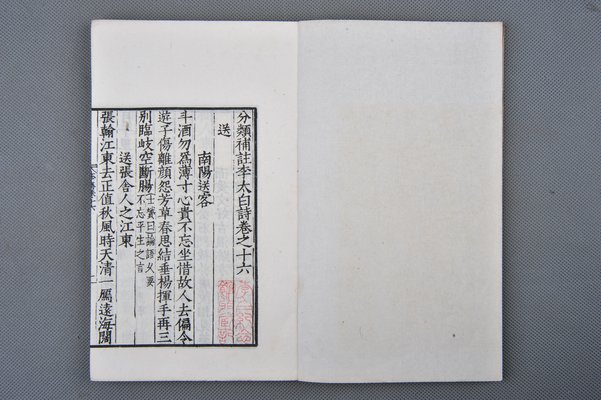 分類補註李太白詩卷之十六
送
南陽送客
斗酒勿為薄寸心貴不忘坐惜故人去偏令
遊子傷離顏怨芳草春思結垂楊揮手再三
別臨岐空斷腸士贇曰論語久要
不忘平生之言
送張舍人之江東
張翰江東去正值秋風時天清一鴈遠海闊